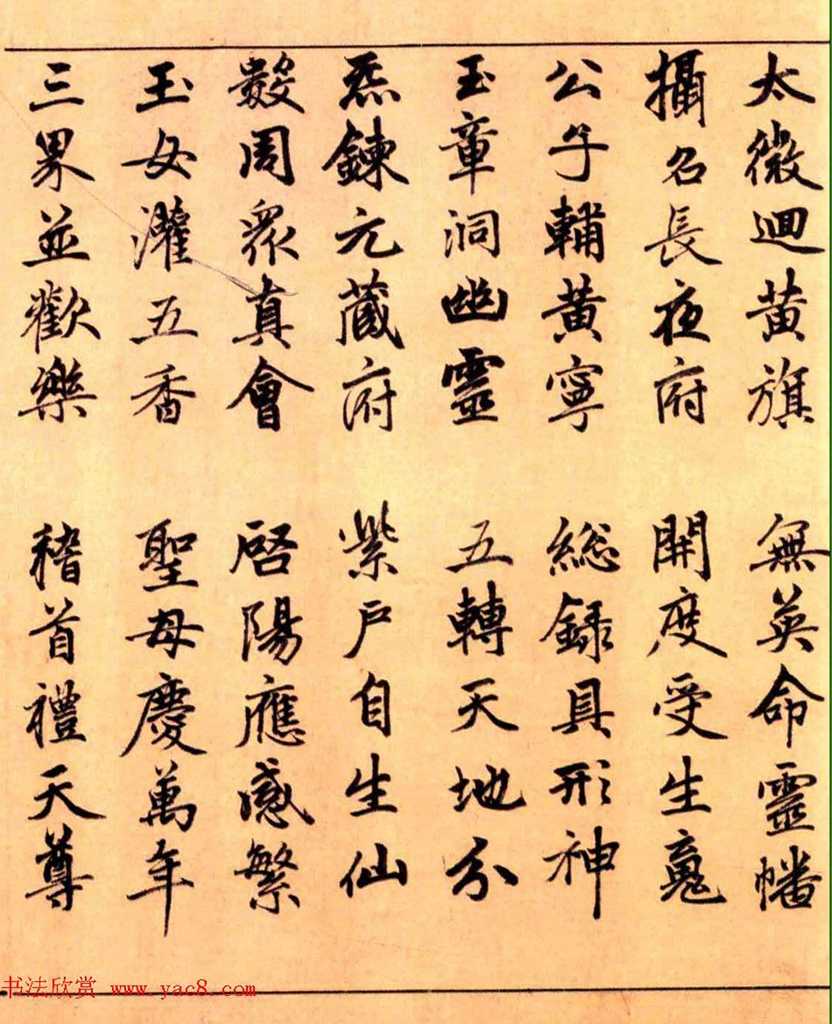 太微迴黄旗 無英命靈幡
攝名長夜府 開度受生寃
公子輔黄寧 総録具形神
玉章洞幽靈 五轉天地分
炁鍊元藏府 紫户自生仙
數周衆真會 啓陽應感繁
玉女灌五香 聖母慶萬年
三界並歡樂 稽首禮天尊
书法欣赏 www.yac8.com